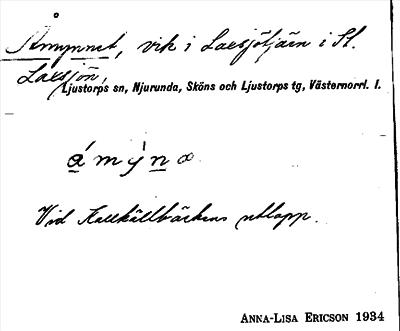 Åmynnet, vik i Laxsjötjärn i St.
Laxsjön,
Ljustorps sn, Njurunda, Sköns och Ljustorps tg, Västernorrl. l.
Vid Kallkällbäckens utlopp.
ANNA-LISA ERICSON 1934